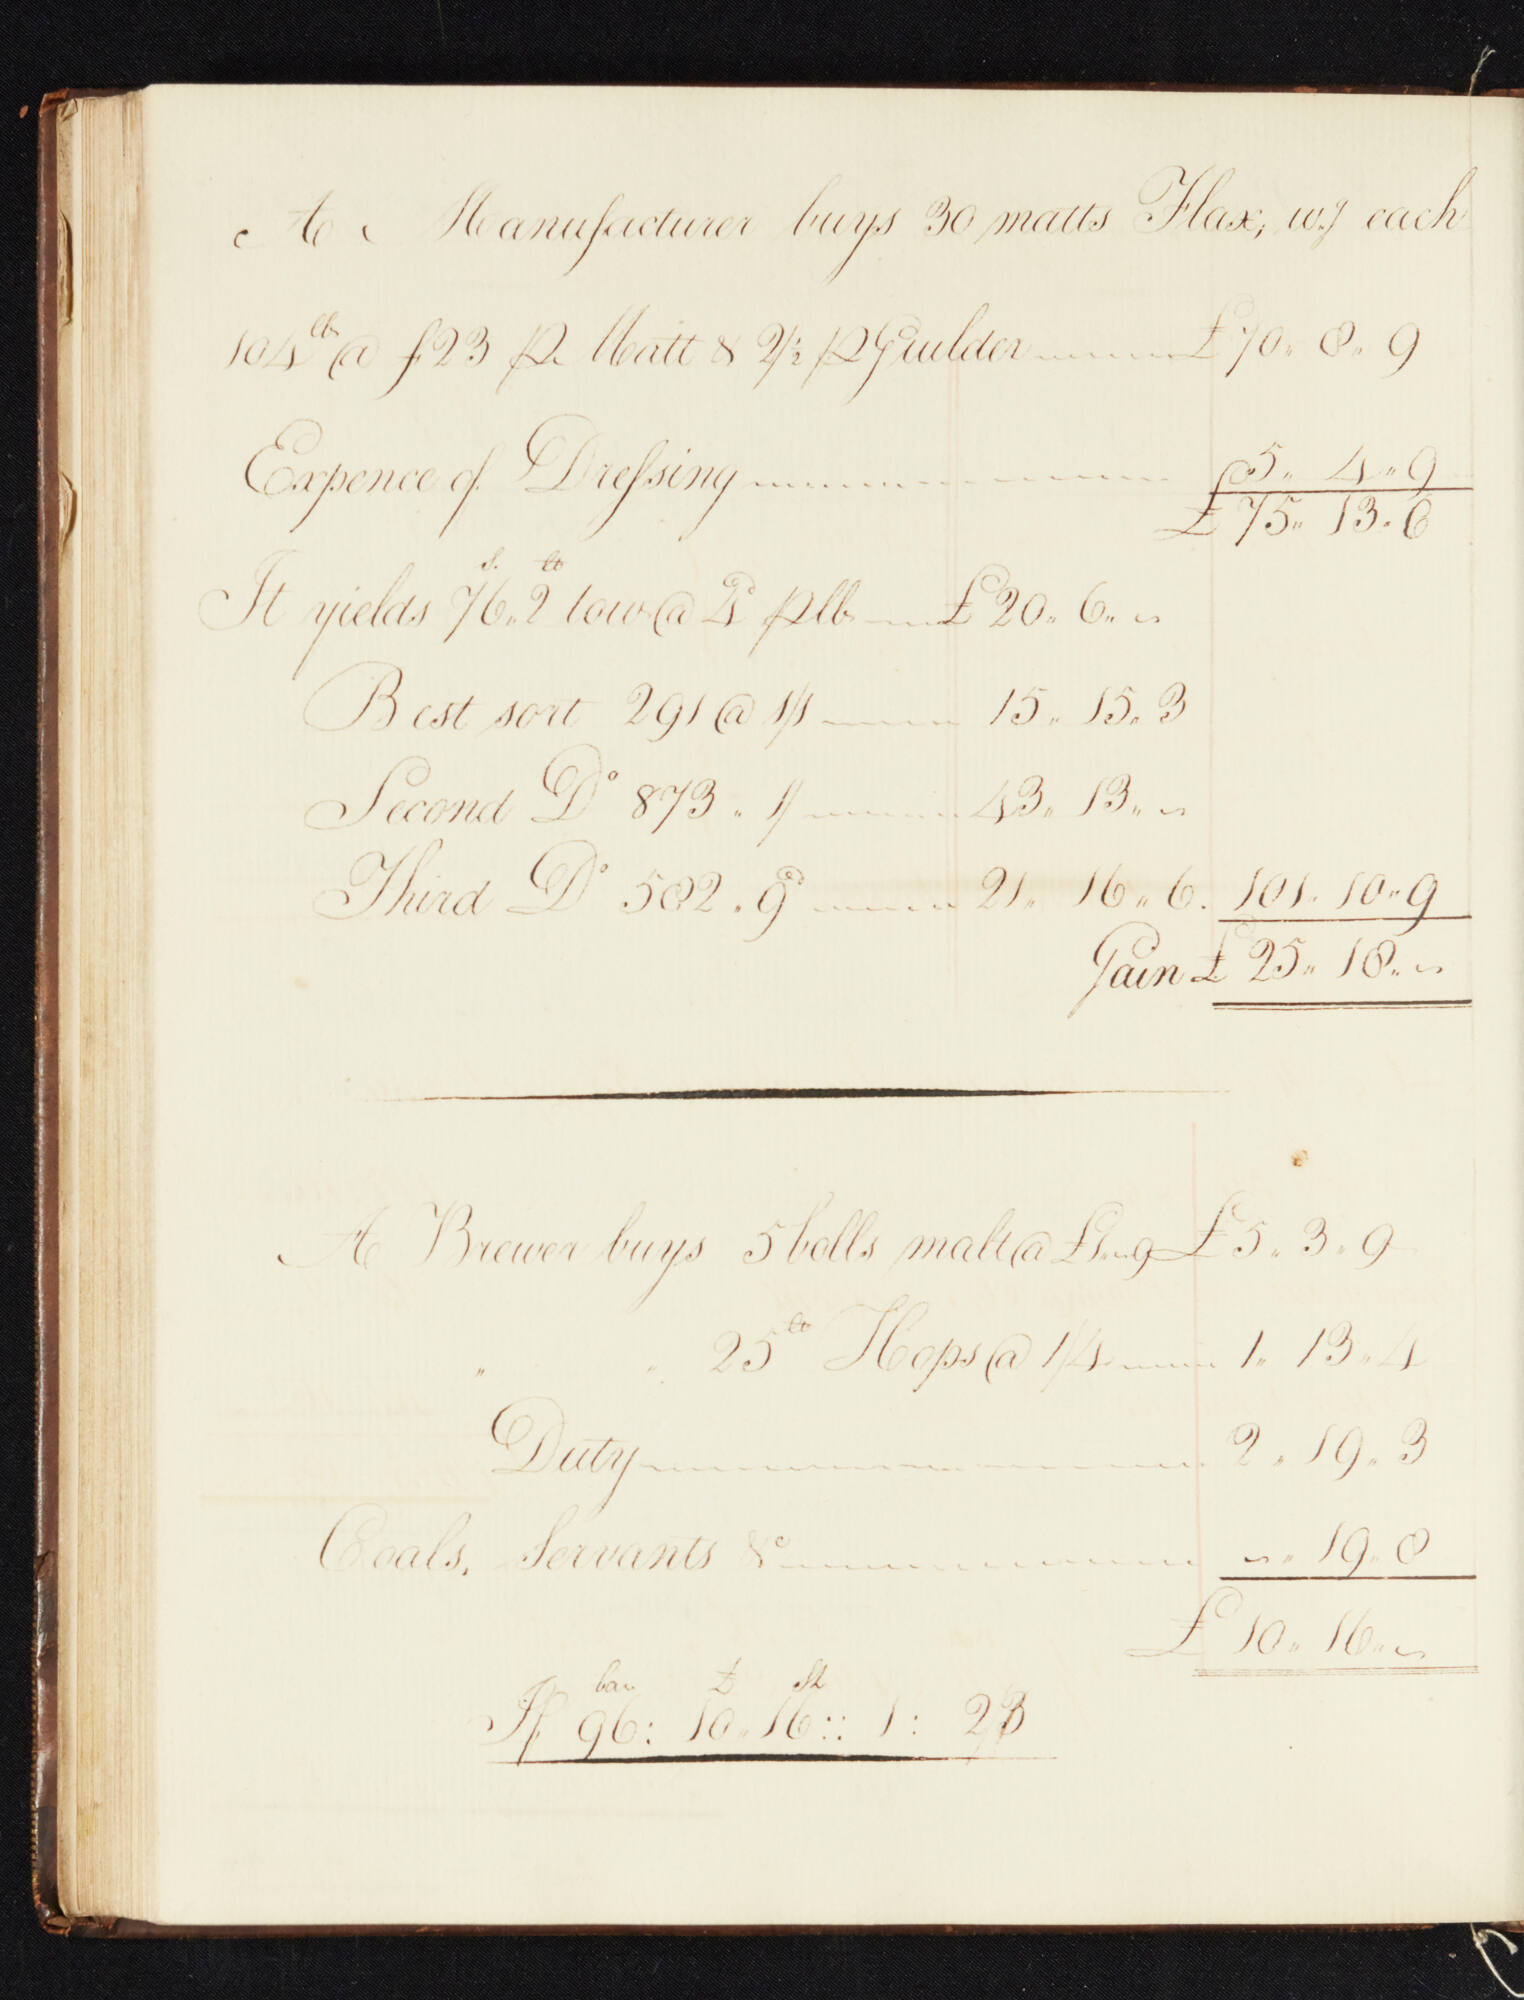 A Manufacturer buys 30 matts Flax, w.g each
104 lb @ f 23 p. Matt & 2/2½ p Guilder £70 ,, 8 ,, 9
Expence of Dreſsing £5 ,, 4 ,, 9
£75 ,, 13 ,, 6
It yields 76 s. ,, 2 lb tow @ 4d p lb £20 ,, 6 ,, ~
Best sort 291 @ 1/1 15 ,, 15 ,, 3
Second Do 873 ,, 1/ 43 ,, 13 ,, ~
Third Do 582 ,, 9d 21 ,, 16 ,, 6. 101 ,, 10 ,, 9
Gain £25 ,, 18 ,, ~
A Brewer buys 5 bolls malt @ £1 ,, ~ ,, 9 £5 ,, 3 ,, 9
,, ,, 25 lb Hops @ 1/4 1 ,, 13 ,, 4
Duty 2 ,, 19 ,, 3
Coals, Servants &c ~ ,, 19 ,, 8
£10 ,, 16 ,, ~
If 96 bar : £10 ,, 16 sh :: 1 : 2/3